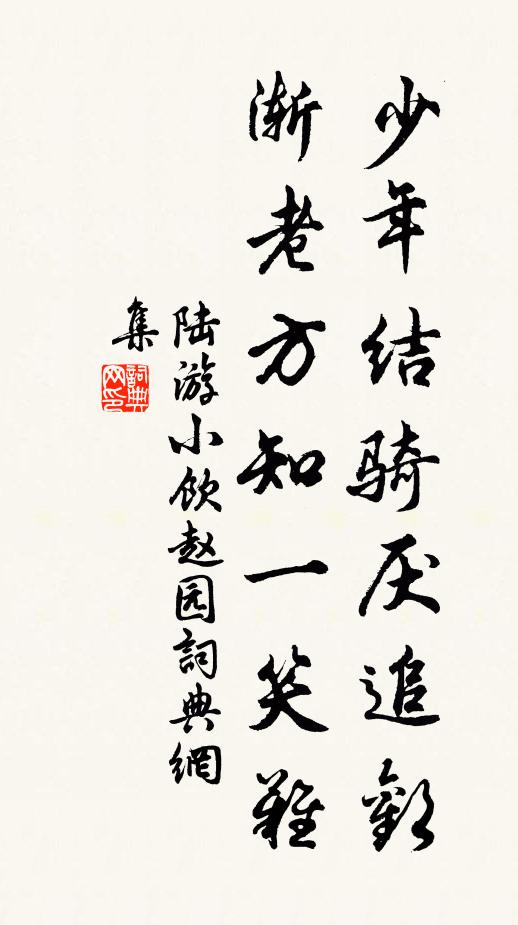 少年结骑厌追歡
渐老方知一笑難
陆游小飲赵园詞典網
集
詞典网印